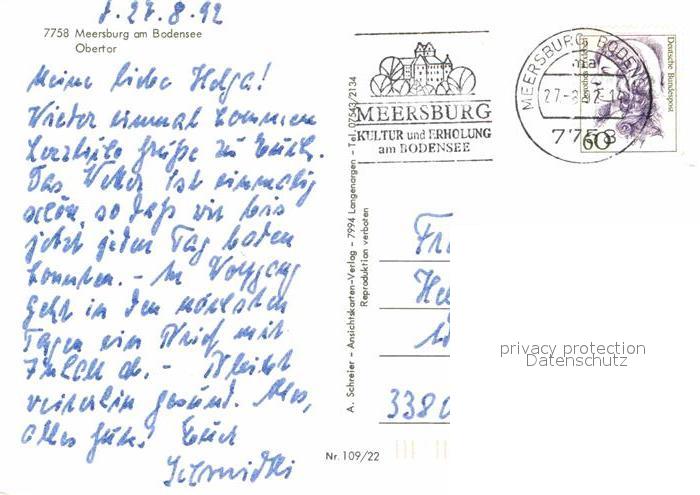 27.8.92
7758 Meersburg am Bodensee
Obertor
Meine liebe Helga!
Wieder einmal kommen
herzliche Grüße zu Euch.
Das Wetter ist einmalig
schön, so daß wir bis
jetzt jeden Tag baden
konnten. - An Wolfgang
geht in den nächsten
Tagen ein Brief mit
ab. - Bleibt
weiterhin gesund. Alles,
alles Gute! Euch
A. Schreier - Ansichtskarten-Verlag - 7994 Langenargen - Tel. 07543/2134
Reproduktion verboten
Nr. 109/22
MEERSBURG
KULTUR und ERHOLUNG
am BODENSEE
MEERSBURG, BODENS
27-8
7758
Deutsche Bundespost
60
Fr
He
338
privacy protection
Datenschutz